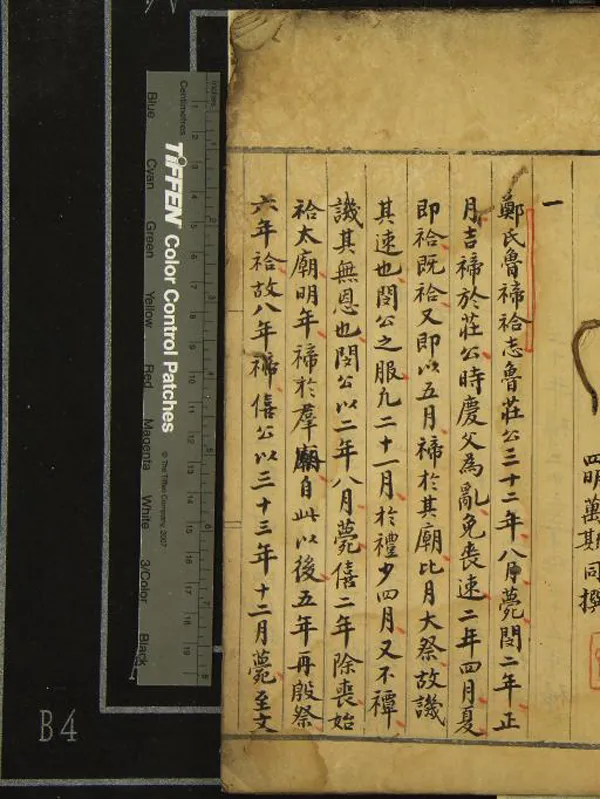 四明萬斯同撰
一
鄭氏魯禘祫志魯莊公三十二年八月薨閔二年正
月吉禘於莊公時慶父為亂免喪速二年四月夏
即祫既祫又即以五月禘於其廟比月大祭故譏
其速也閔公之服凡二十一月於禮少四月又不禫
譏其無恩也閔公以二年八月薨僖二年除喪始
祫太廟明年禘於羣廟自此以後五年再殷祭
六年祫故八年禘僖公以三十三年十二月薨至文
Inches
1 2 3 4 5 6 7 8
Centimetres
1 2 3 4 5 6 7 8 9 10 11 12 13 14 15 16 17 18 19
TIFFEN Color Control Patches
© The Tiffen Company, 2007
Blue Cyan Green Yellow Red Magenta White 3/Color Black
B4